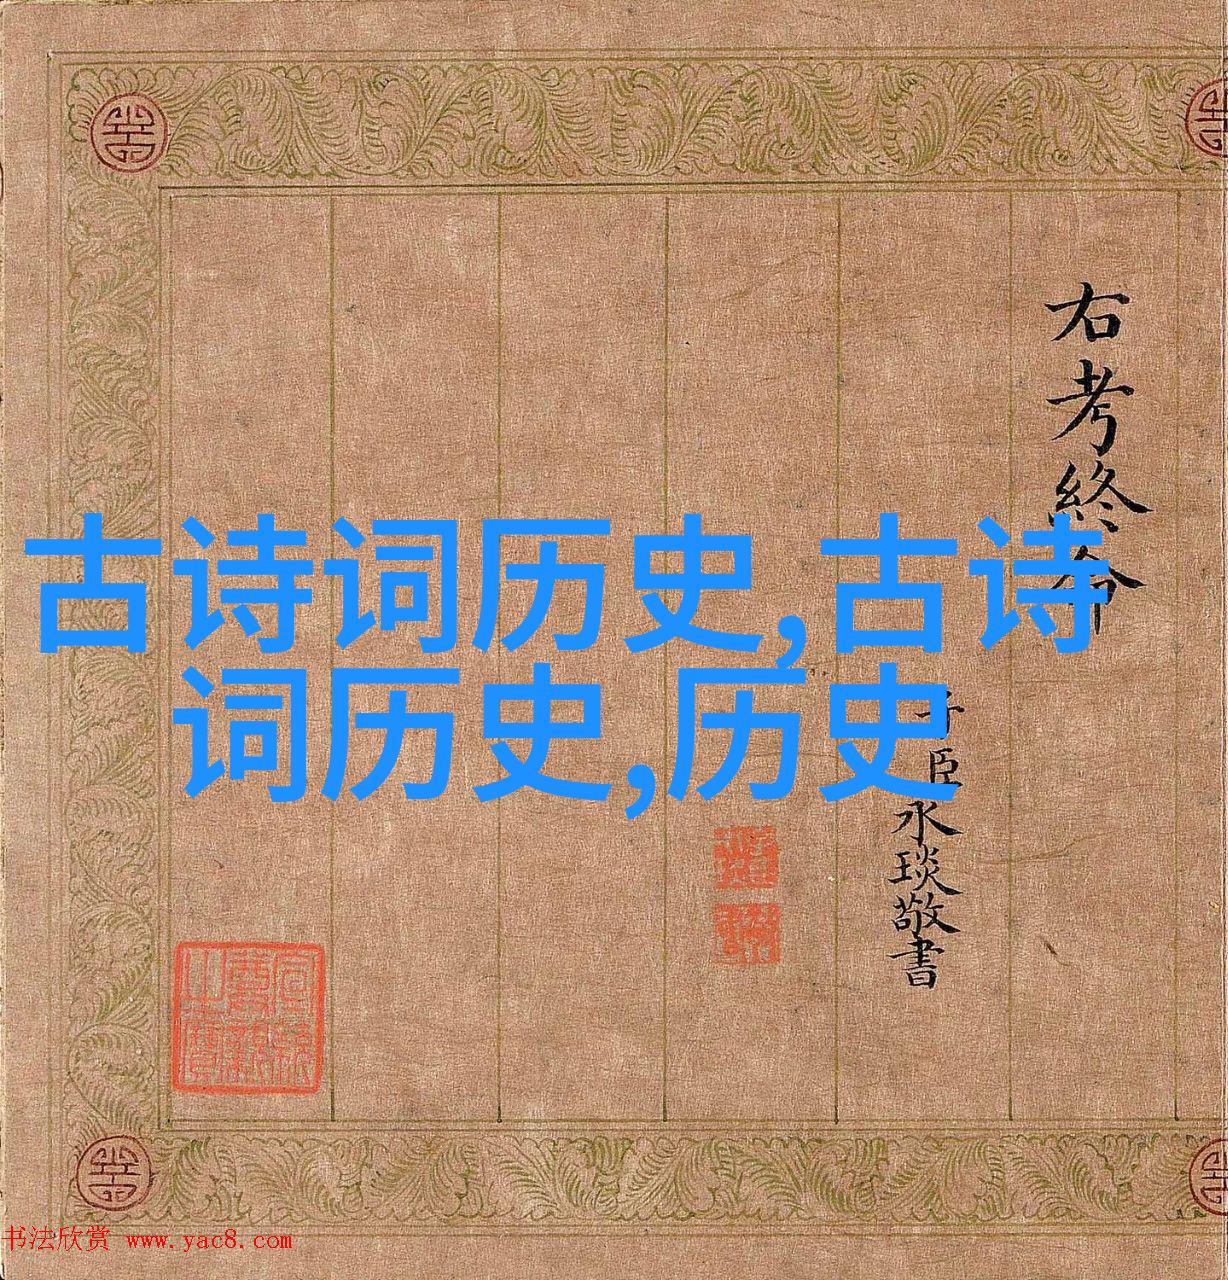 古诗词历史,古诗
词历史,历史
右考終命
子臣永琰敬書
书法欣赏 www.yac8.com